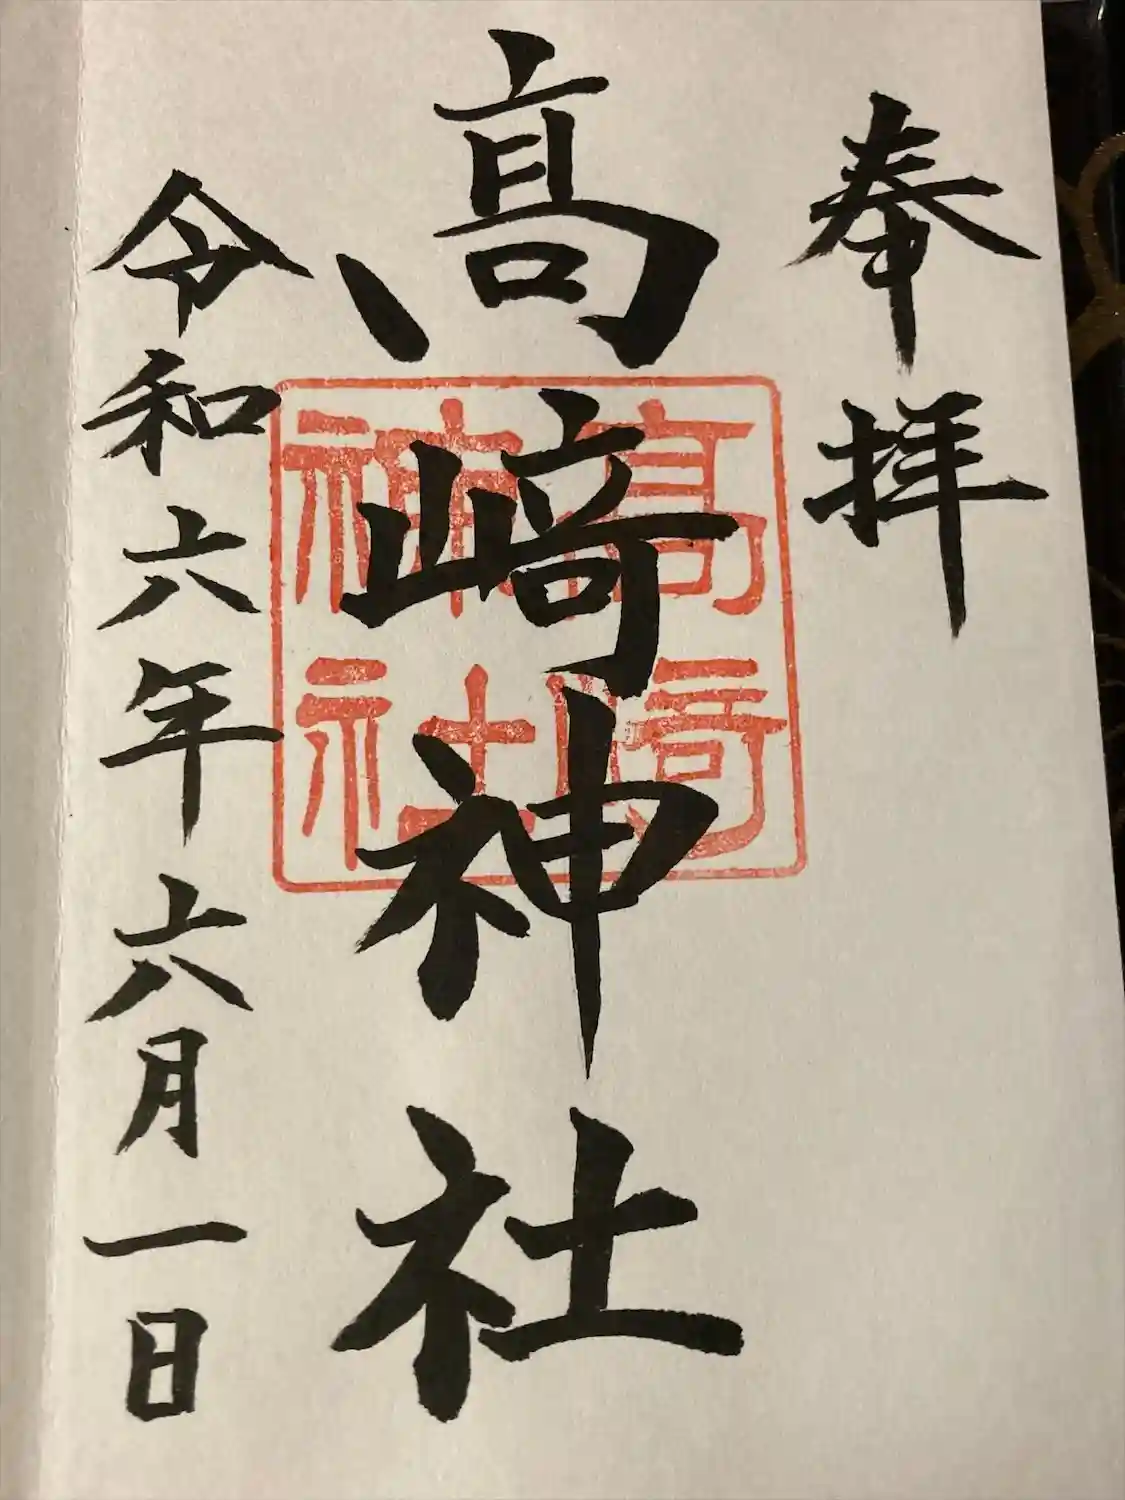 奉拝
髙﨑神社
髙﨑
神社
令和六年六月一日